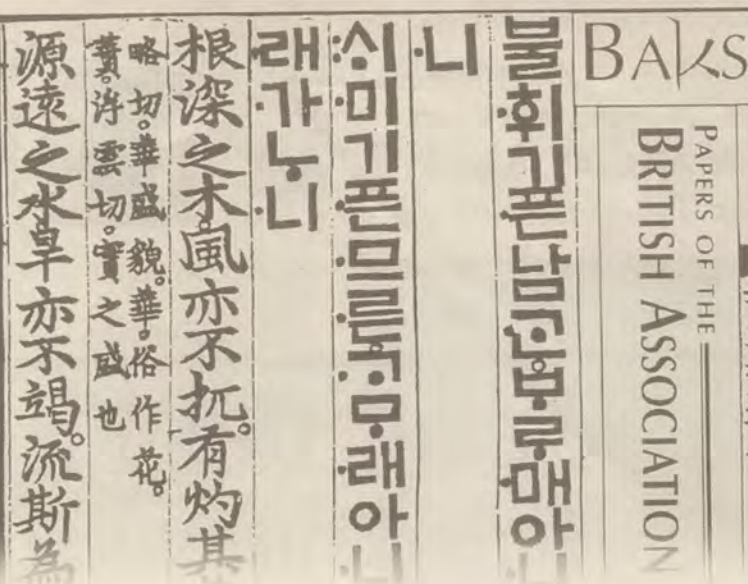 BAKS
PAPERS OF THE
BRITISH ASSOCIATION
불휘기픈남ᄀᆞᆫᄇᆞᄅᆞ매아니
니
ᄉᆡ미기픈므른ᄀᆞᄆᆞ래아니
래가ᄂᆞ니
根深之木。風亦不扤。有灼其
略切。華盛貌。華。俗作花。
蕡。浮雲切。實之盛也
源遠之水旱亦不竭。流斯為